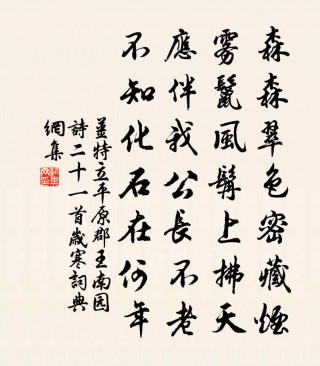 森森翠色密藏煙
霧鬣風髯上拂天
應伴我公長不老
不知化石在何年
姜特立平原郡王南园
詩二十一首歲寒詞典
網集